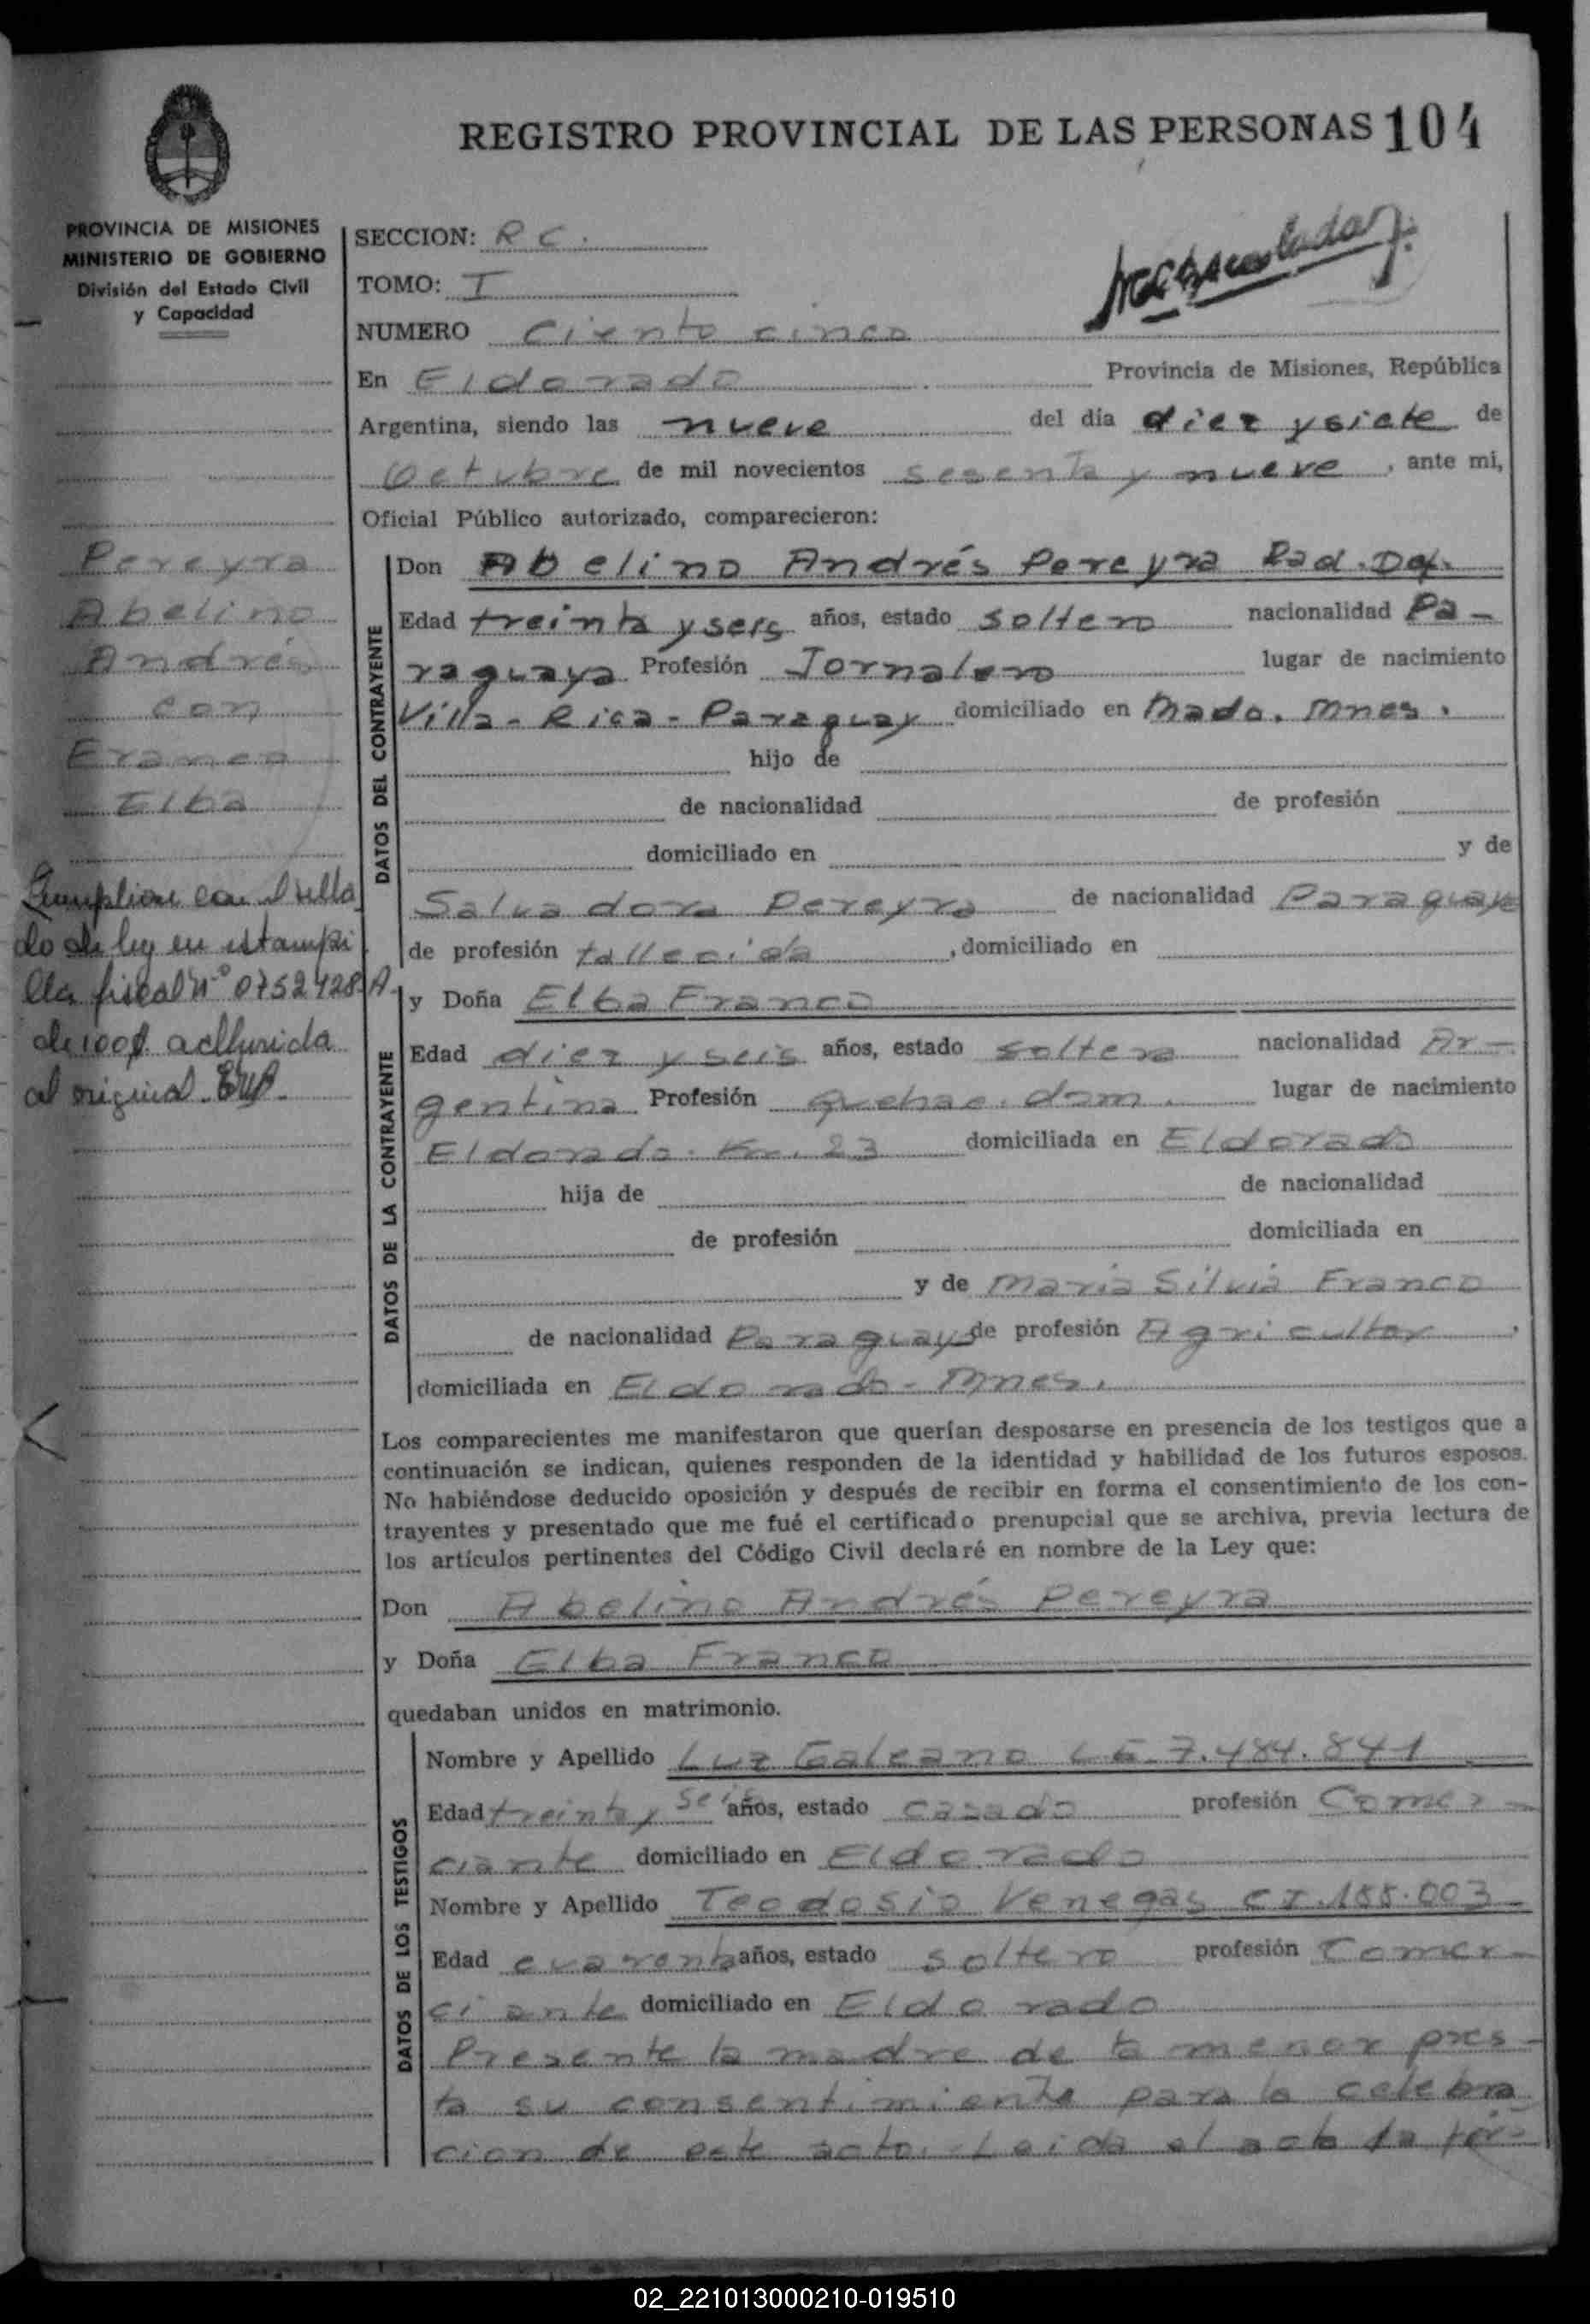 REGISTRO PROVINCIAL DE LAS PERSONAS 104
PROVINCIA DE MISIONES
MINISTERIO DE GOBIERNO
División del Estado Civil
y Capacidad
SECCION: R C.
TOMO: I
NUMERO Ciento cinco
En Eldorado Provincia de Misiones, República
Argentina, siendo las nueve del día diez y siete de
Octubre de mil novecientos sesenta y nueve, ante mi,
Oficial Público autorizado, comparecieron:
Pereyra
Abelino
Andrés
con
Franco
Elba
Cumplióse con
do de ley en estampi
lla fiscal nº 0752428 A
de 100$ adherida
al original.
DATOS DEL CONTRAYENTE
Don Abelino Andrés Pereyra
Edad treinta y seis años, estado soltero nacionalidad Pa-
raguaya Profesión Jornalero lugar de nacimiento
Villa-Rica-Paraguay domiciliado en Mado. Mnes.
hijo de
de nacionalidad de profesión
domiciliado en y de
Salvadora Pereyra de nacionalidad Paraguaya
de profesión fallecida, domiciliado en
DATOS DE LA CONTRAYENTE
y Doña Elba Franco
Edad diez y seis años, estado soltera nacionalidad Ar-
gentina Profesión Quehac. dom. lugar de nacimiento
Eldorado. Km. 23 domiciliada en Eldorado
hija de de nacionalidad
de profesión domiciliada en
y de Maria Silvia Franco
de nacionalidad Paraguay de profesión Agricultor
domiciliada en Eldorado-Mnes.
Los comparecientes me manifestaron que querían desposarse en presencia de los testigos que a
continuación se indican, quienes responden de la identidad y habilidad de los futuros esposos.
No habiéndose deducido oposición y después de recibir en forma el consentimiento de los con-
trayentes y presentado que me fué el certificado prenupcial que se archiva, previa lectura de
los artículos pertinentes del Código Civil declaré en nombre de la Ley que:
Don Abelino Andrés Pereyra
y Doña Elba Franco
quedaban unidos en matrimonio.
DATOS DE LOS TESTIGOS
Nombre y Apellido Luz Galeano L E-7.484.841
Edad treinta y seis años, estado casado profesión Comer-
ciante domiciliado en Eldorado
Nombre y Apellido Teodosio Venegas C I.188.003
Edad cuarenta años, estado soltero profesión Comer-
ciante domiciliado en Eldorado
Presente la madre de la menor pres-
ta su consentimiento para la celebra
cion de este acto. Leida el acta la
02_221013000210-019510